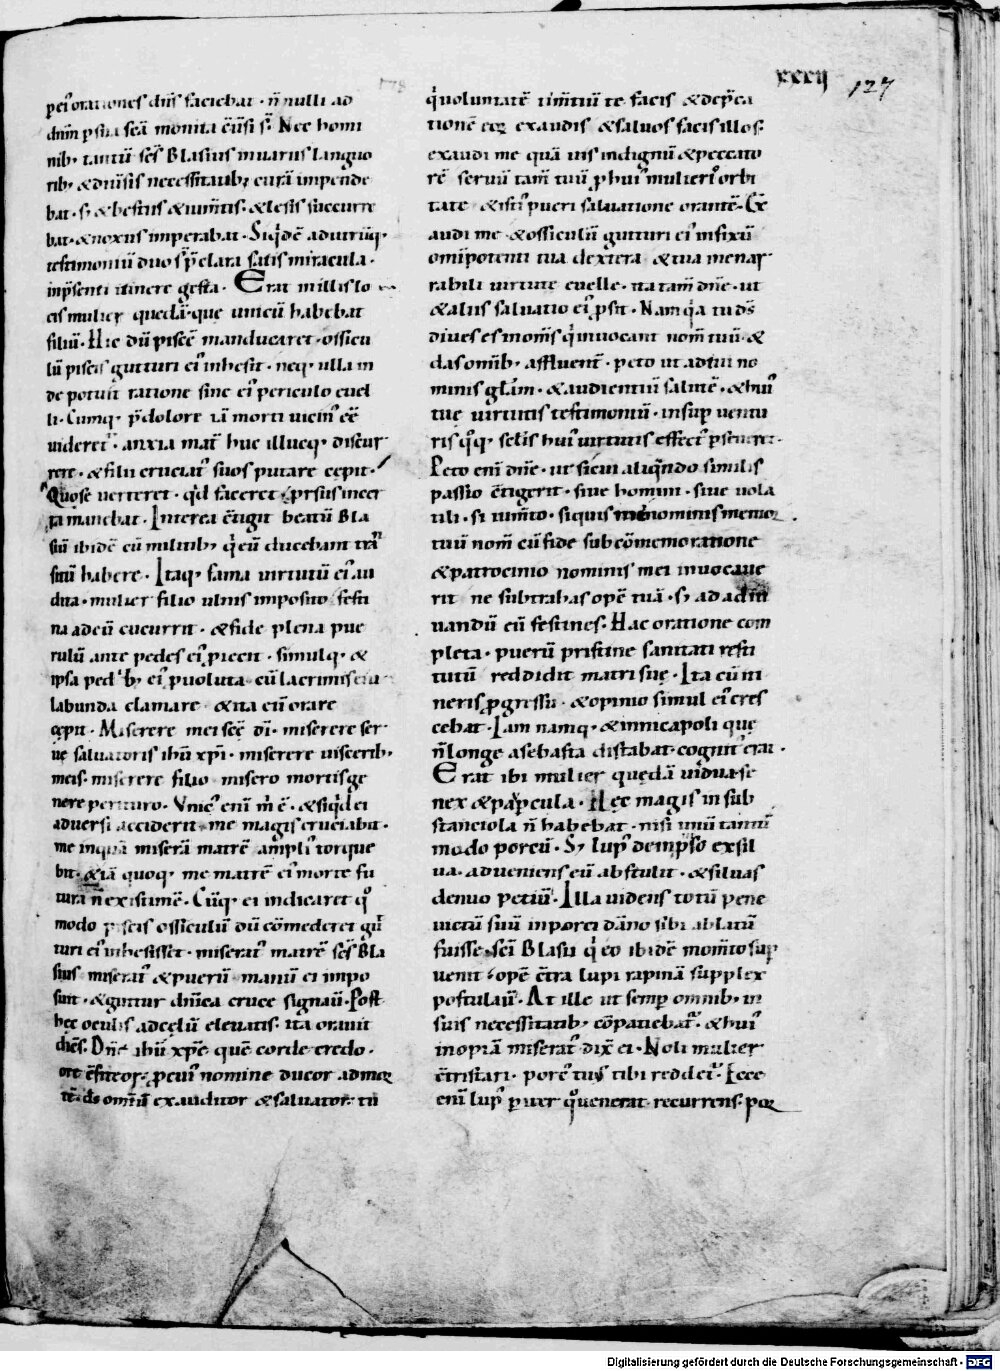 xxxij 127
per orationes dn̄s faciebat · n̄nulli ad
dn̄m p sua sc̄a monita ēusi s̄. Nec homi
nib; tantū sc̄s Blasius in uariis languo
rib; & diūsis necessitatib; curā impende
bat · s; & bestiis & iumt̄is · & lesis succurre
bat · & noxiis imperabat · Siq'dē ad utrūq;
testimoniū duo s' p̄clara satis miracula ·
in p̄senti itinere gesta · Erat in illis lo
cis mulier quedā · que unicū habebat
filiū · Hic dū piscē manducaret · ossicu
lū piscis gutturi ei' inhesit · neq; ulla in
de potuit ratione sine ei' periculo euel
li · Cumq; p̄ dolore iā morti uicin' eē
uideret' · anxia mat̄ huc illucq; discur
rere · & filii cruciat' suos putare cępit ·
Quo sē uerteret · q'd faceret prsus incer
ta manebat · Interea c̄tigit beatū Bla
siū ibidē cū militib; q' eū ducebant trā
sitū habere · Itaq; fama uirtutū ei' au
dita · mulier filio ulnis imposito festi
na ad eū cucurrit · & fide plena pue
rulū ante pedes ei' piecit · simulq; &
ipsa pedib; ei' puoluta · cū lacrimis eiu
labunda clamare · & ita eū orare
cępit · Miserere mei sc̄e dī · miserere ser
ue saluatoris ihū xp̄i · miserere uiscerib;
meis · miserere filio misero mortis ge
nere perituro · Vnic' enī m̄ ē · & siq'd ei
aduersi acciderit · me magis cruciabit ·
me inquā miserā matrē ampli' torque
bit · & iā quoq; me matrē ei' morte fu
turā n̄ existimē · Cūq; ei indicaret q°
modo piscis ossiculū dū cōmederet gut
turi ei' inhesisset · miserat' matrē sc̄s Bla
sius miserat' & puerū · manū ei impo
suit · & guttur dn̄ica cruce signauit · Post
hęc oculis ad cęlū eleuatis · ita orauit
dicēs · Dn̄e ihū xp̄e quē corde credo ·
ore c̄fiteor · p cui' nomine ducor ad mor
tē · ds̄ omniū exauditor & saluator · tu
q' uoluntatē timt̄iū te facis & dep̄ca
tionē eoꝝ exaudis & saluos facis illos ·
exaudi me quāuis indignū & peccato
rē seruū tam̄ tuū p hui' mulieris orbi
tate & isti' pueri saluatione orantē · Ex
audi me & ossiculū gutturi ei' infixū
omīpotenti tua dextera & tua menar
rabili uirtute euelle · ita tam̄ dn̄e · ut
& aliis saluatio ei' psit · Nam q'a tu ds̄
diues es in om̄s q' inuocant nom̄ tuū · &
das omīb; affluent̄ · peto ut ad tui no
minis gl̄am · & audientiū salutē · & hui'
tuę uirtutis testimoniū · insup uentu
ris q°q; sclis hui' uirtutis effect' pseueret ·
Peto enī dn̄e · ut sicui aliqn̄do similis
passio c̄tigerit · siue homini · siue uola
tili · si iumt̄o · siquis mei nominis memor
tuū nom̄ cū fide sub cōmemoratione
& patrocinio nominis mei inuocaue
rit ne subtrahas opē tuā · s; ad adiu
uandū eū festines · Hac oratione com
pleta · puerū pristine sanitati resti
tutū reddidit matri suę · Ita cū iti
neris pgressu · & opinio simul ei' cres
cebat · Iam namq; & in uico poli quę
n̄ longe a sebasta distabat · cognit' erat ·
Erat ibi mulier quędā uidua · se
nex & paupcula · Hęc magis in sub
stantiola n̄ habebat · nisi unū tantū
modo porcū · S; lup' demp̄so exsil
ua · adueniens eū abstulit · & siluas
denuo petiuit · Illa uidens totū pene
uictū suū in porci dāno sibi ablatū
fuisse · sc̄i Blasii q' eo ibidē momt̄o sup
uenit · opē c̄tra lupi rapinā supplex
postulauit · At ille ut semp omnib; in
suis necessitatib; cōpatiebat' · & hui'
inopiā miserat' dix̄ ei · Noli mulier
c̄tristari · porc' tuus tibi reddet' · Ecce
enī lup' p iter q° uenerat recurrens · por
Digitalisierung gefördert durch die Deutsche Forschungsgemeinschaft - DFG